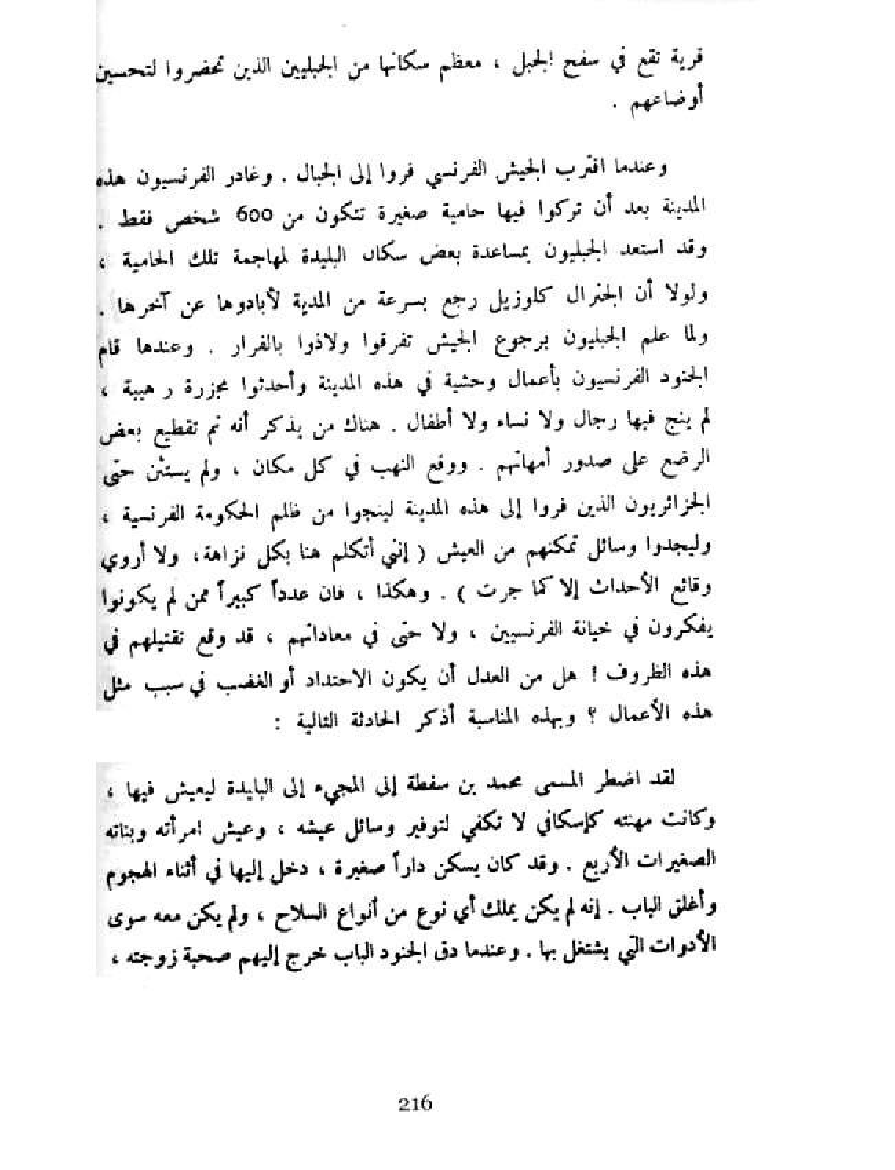 قرية تقع في سفح الجبل ، معظم سكانها من الجبليين الذين تحضروا لتحسين
أوضاعهم .
وعندما اقترب الجيش الفرنسي فروا إلى الجبال . وغادر الفرنسيون هذه
المدينة بعد أن تركوا فيها حامية صغيرة تتكون من 600 شخص فقط .
وقد استعد الجبليون بمساعدة بعض سكان البليدة لمهاجمة تلك الحامية ،
ولولا أن الجنرال كلوزيل رجع بسرعة من المدية لأبادوها عن آخرها .
ولما علم الجبليون برجوع الجيش تفرقوا ولاذوا بالفرار . وعندها قام
الجنود الفرنسيون بأعمال وحشية في هذه المدينة وأحدثوا مجزرة رهيبة ،
لم ينج فيها رجال ولا نساء ولا أطفال . هناك من يذكر أنه تم تقطيع بعض
الرضع على صدور أمهاتهم . ووقع النهب في كل مكان ، ولم يستثن حتى
الجزائريون الذين فروا إلى هذه المدينة لينجوا من ظلم الحكومة الفرنسية ،
وليجدوا وسائل تمكنهم من العيش ( إنني أتكلم هنا بكل نزاهة ، ولا أروي
وقائع الأحداث إلا كما جرت ) . وهكذا ، فان عدداً كبيراً ممن لم يكونوا
يفكرون في خيانة الفرنسيين ، ولا حتى في معاداتهم ، قد وقع تقتيلهم في
هذه الظروف ! هل من العدل أن يكون الاحتداد أو الغضب في سبب مثل
هذه الأعمال ؟ وبهذه المناسبة أذكر الحادثة التالية :
لقد اضطر المسمى محمد بن سفطة إلى المجيء إلى البايدة ليعيش فيها ،
وكانت مهنته كإسكافي لا تكفي لتوفير وسائل عيشه ، وعيش امرأته وبناته
الصغيرات الأربع . وقد كان يسكن داراً صغيرة ، دخل إليها في أثناء الهجوم
وأغلق الباب . إنه لم يكن يملك أي نوع من أنواع السلاح ، ولم يكن معه سوى
الأدوات التي يشتغل بها . وعندما دق الجنود الباب خرج إليهم صحبة زوجته ،
216